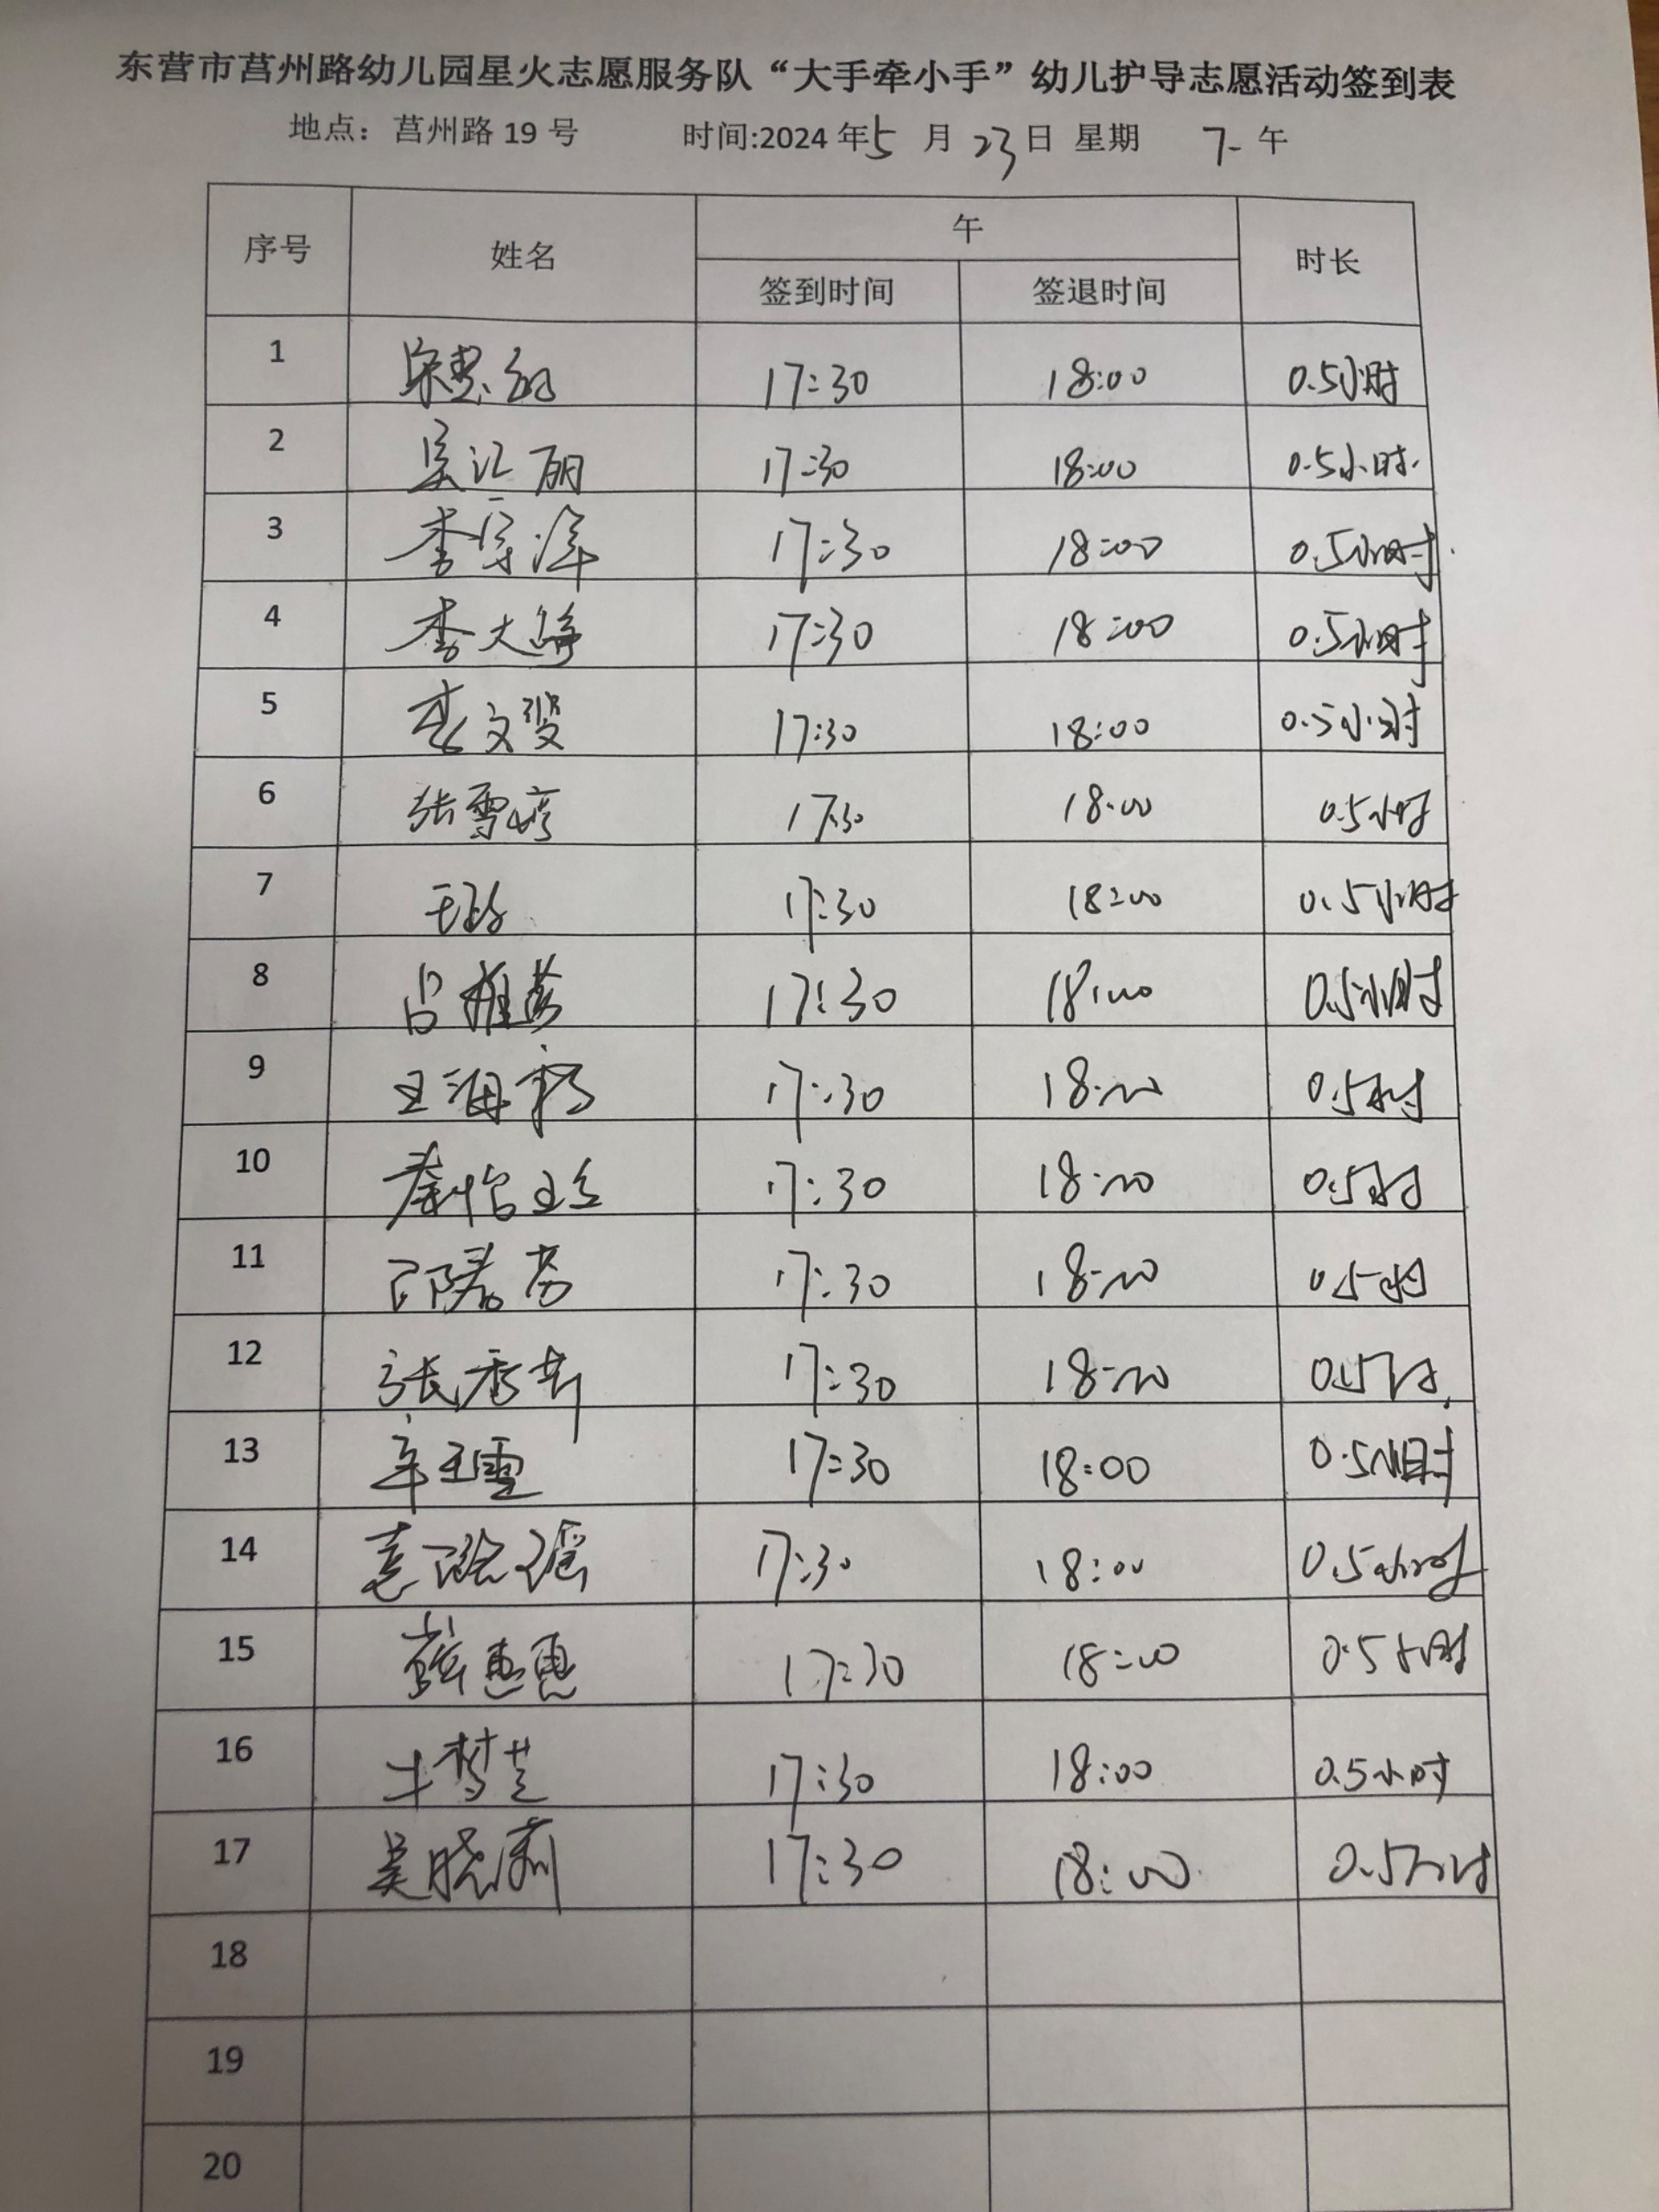 东营市莒州路幼儿园星火志愿服务队“大手牵小手”幼儿护导志愿活动签到表
地点：莒州路 19 号 时间:2024 年 5 月 23 日 星期 下 午
序号 姓名 午 时长
签到时间 签退时间
1 17:30 18:00 0.5小时
2 吴江丽 17:30 18:00 0.5小时.
3 李宗泽 17:30 18:00 0.5小时
4 李大 17:30 18:00 0.5小时
5 李文燮 17:30 18:00 0.5小时
6 张雪彦 17:30 18:00 0.5小时
7 17:30 18:00 0.5小时
8 吕雅 17:30 18:00 0.5小时
9 王海 17:30 18:00 0.5小时
10 秦怡 17:30 18:00 0.5小时
11 17:30 18:00 0.5小时
12 张秀 17:30 18:00 0.5小时
13 辛玉雪 17:30 18:00 0.5小时
14 袁 瑶 17:30 18:00 0.5小时
15 薛惠惠 17:30 18:00 0.5小时
16 牛梦芝 17:30 18:00 0.5小时
17 吴晓莉 17:30 18:00 0.5小时
18
19
20